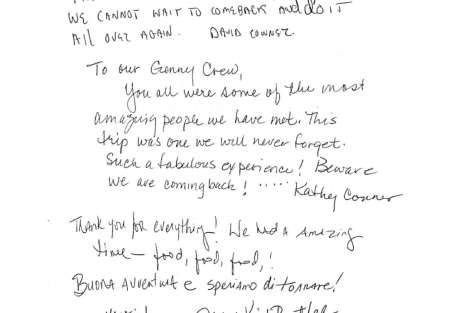 WE CANNOT WAIT TO COMEBACK and do IT
All OVER AGAIN. DAVID CONNER
To our Genny Crew,
You all were some of the most
amazing people we have met. This
trip was one we will never forget.
Such a fabulous experience! Beware
we are coming back! ..... Kathy Conner
Thank you for everything! We had A Amazing
time— food, food, food,!
BUONA AVVENTURE e speriamo di tornare!